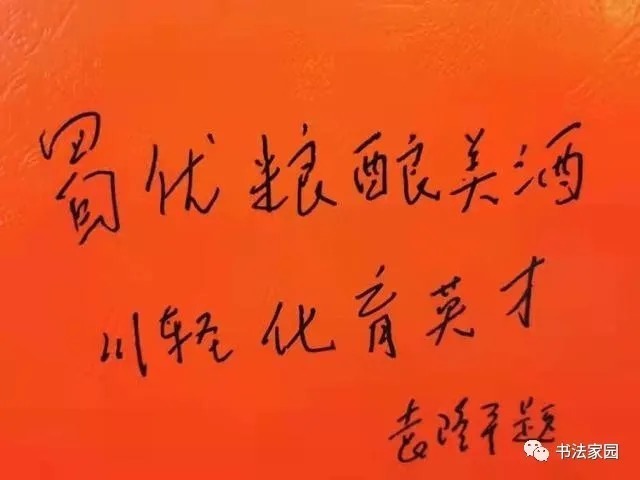 蜀优粮酿美酒
川轻化育英才
袁隆平题
书法家园